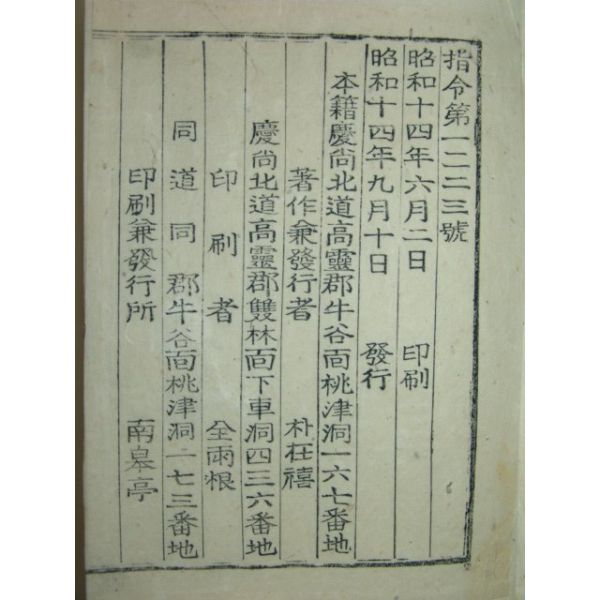 指令第一二二三號
昭和十四年六月二日 印刷
昭和十四年九月十日 發行
本籍慶尙北道高靈郡牛谷面桃津洞一六七番地
著作兼發行者 朴在禧
慶尙北道高靈郡雙林面下車洞四三六番地
印刷者 全雨根
同道同郡牛谷面桃津洞二七三番地
印刷兼發行所 南皐亭